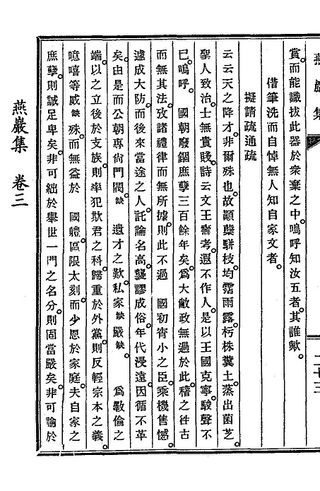 燕巖集
二十三
賞而能識拔此器於衆棄之中。嗚呼知汝五者其誰歟。
借筆洗而自悼無人知自家文者。
擬請疏通疏
云云天之降才。非爾殊也。故顚蘖騈枝。均霑雨露。朽株糞土。蒸出菌芝。
聖人致治。士無貴賤。詩云文王壽考。遐不作人。是以王國克寧。駿聲不
已。嗚呼。國朝廢錮庶孼三百餘年矣。爲大敝政無過於此。稽之往古
而無其法。攷諸禮律而無所據。則此不過 國初宵小之臣。乘機售憾。
遽成大防。而後來當途之人。託論名高。襲謬成俗。年代浸遠。因循不革
矣。由是而公朝專尙門閥。缺 遺才之歎。私家缺嚴缺 爲斁倫之
端。以之立後於支族。則率犯欺君之科。歸重於外黨。則反輕宗本之義。
噫嘻。等威缺殊而無益於 國體。區限太刻而少恩於家庭。夫自家之
庶孼則誠足卑矣。非可絀於擧世。一門之名分則固當嚴矣。非可論於
燕巖集 卷三